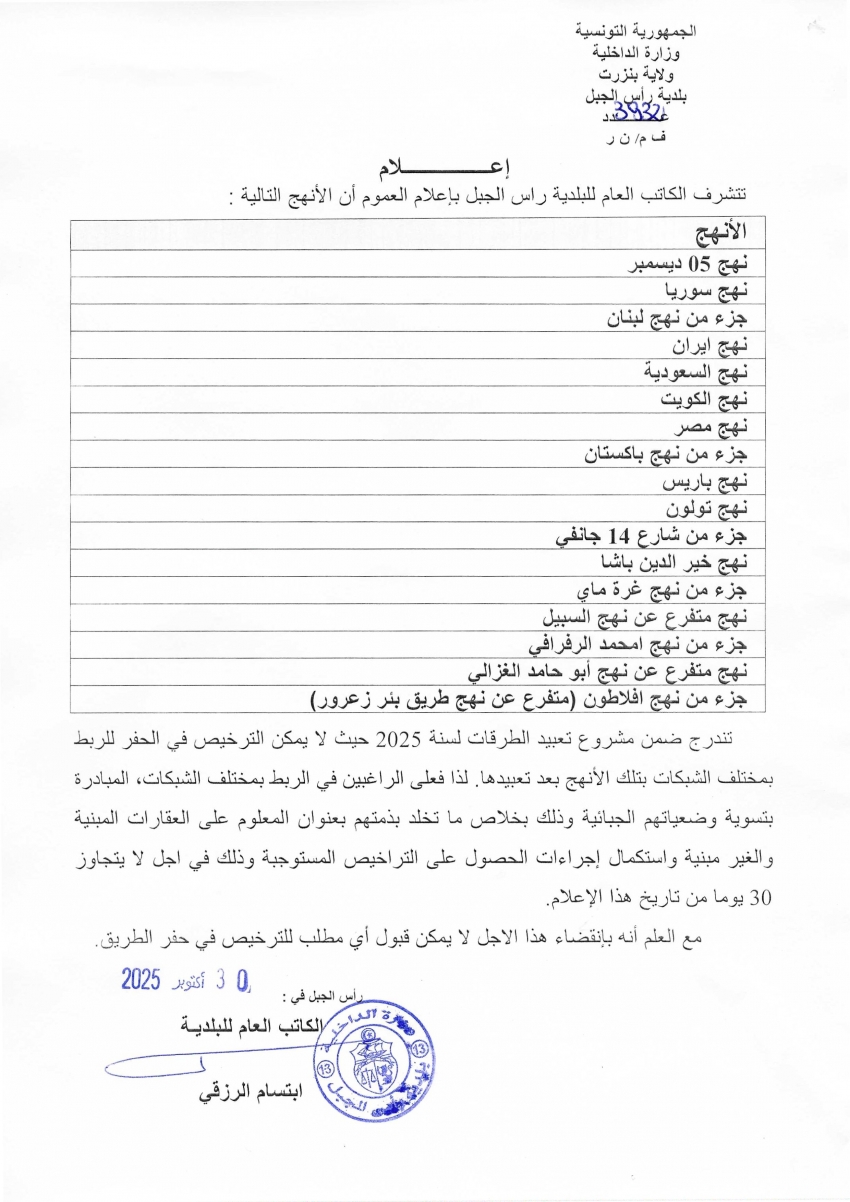 الجمهورية التونسية
وزارة الداخلية
ولاية بنزرت
بلدية رأس الجبل
عـــدد 3932
ف م/ ن ر
إعـــــــــــلام
تتشرف الكاتب العام للبلدية راس الجبل بإعلام العموم أن الأنهج التالية :
الأنهج
نهج 05 ديسمبر
نهج سوريا
جزء من نهج لبنان
نهج ايران
نهج السعودية
نهج الكويت
نهج مصر
جزء من نهج باكستان
نهج باريس
نهج تولون
جزء من شارع 14 جانفي
نهج خير الدين باشا
جزء من نهج غرة ماي
نهج متفرع عن نهج السبيل
جزء من نهج امحمد الرفرافي
نهج متفرع عن نهج أبو حامد الغزالي
جزء من نهج افلاطون (متفرع عن نهج طريق بئر زعرور)
تندرج ضمن مشروع تعبيد الطرقات لسنة 2025 حيث لا يمكن الترخيص في الحفر للربط
بمختلف الشبكات بتلك الأنهج بعد تعبيدها. لذا فعلى الراغبين في الربط بمختلف الشبكات، المبادرة
بتسوية وضعياتهم الجبائية وذلك بخلاص ما تخلد بذمتهم بعنوان المعلوم على العقارات المبنية
والغير مبنية واستكمال إجراءات الحصول على التراخيص المستوجبة وذلك في اجل لا يتجاوز
30 يوما من تاريخ هذا الإعلام.
مع العلم أنه بإنقضاء هذا الاجل لا يمكن قبول أي مطلب للترخيص في حفر الطريق.
رأس الجبل في : 30 أكتوبر 2025
الكاتب العام للبلدية
ابتسام الرزقي
وزارة الداخلية
13
13
الجبل